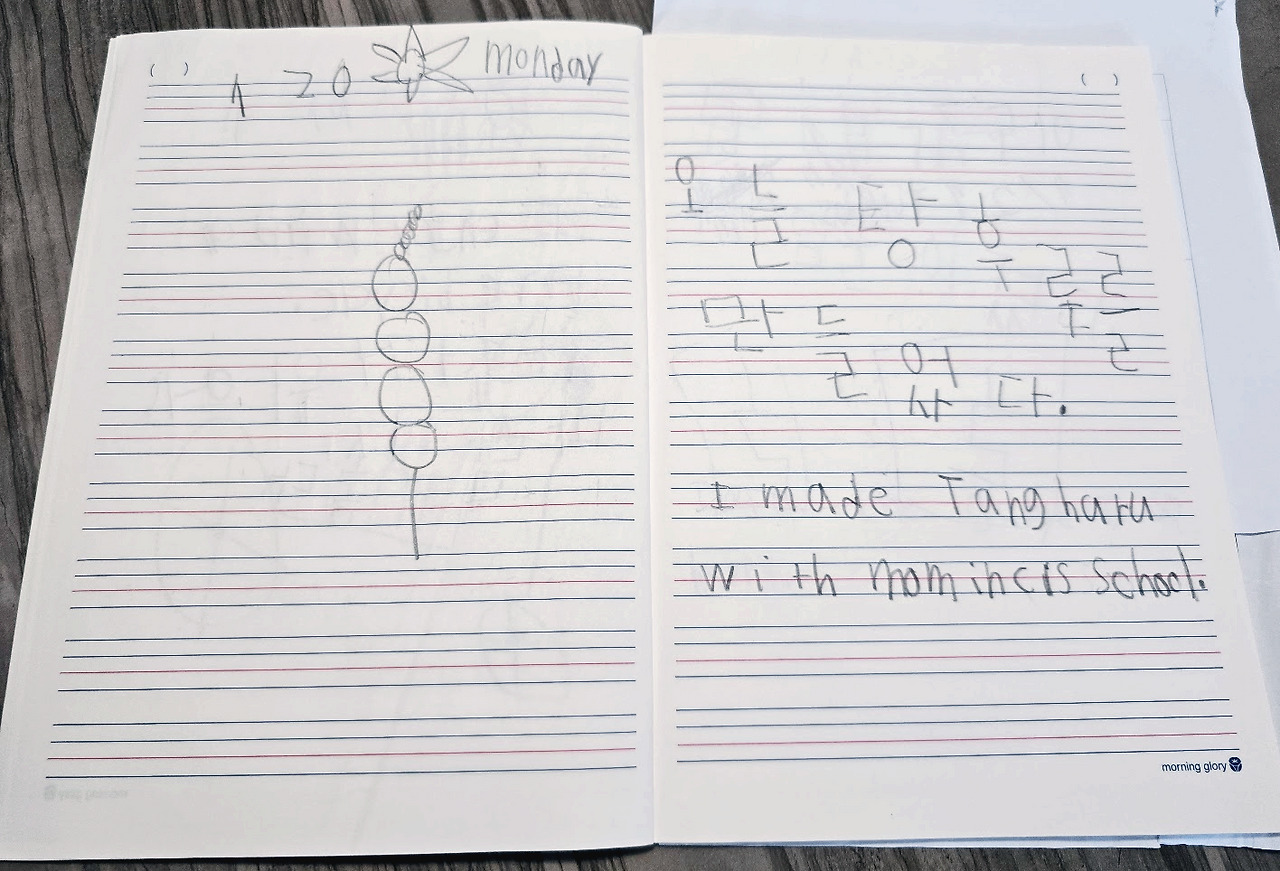 ( )
1 20 monday
( )
오늘 탕후루를
만들었다.
I made Tangharu
with mom in cis school.
morning glory